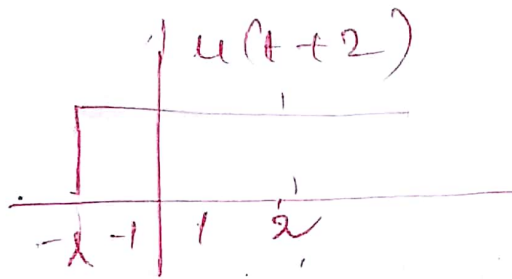 u(t+2)
-2 -1 1 2